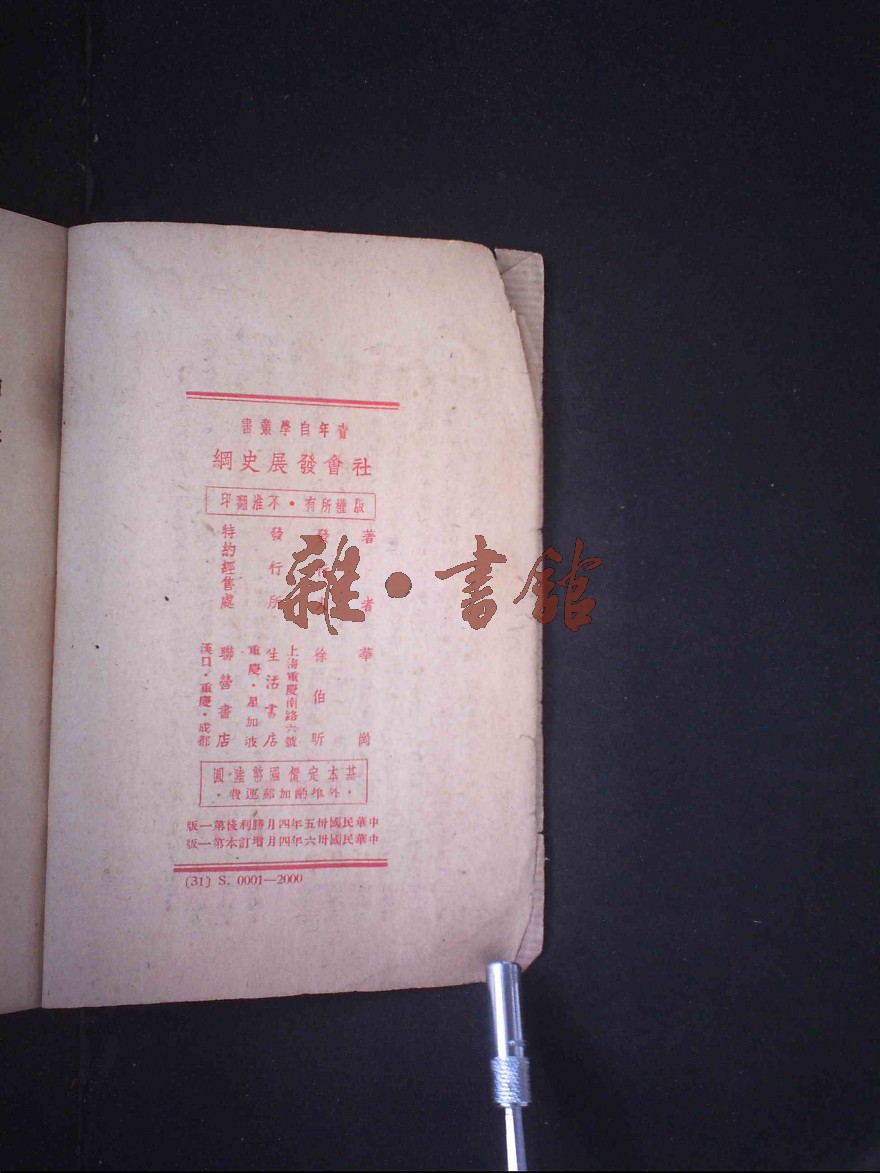 青年自學叢書
社會發展史綱
版權所有・不准翻印
著者 華崗
發行人 徐伯昕
發行所 生活書店
上海重慶南路六號
重慶・星加坡
特約經售處 聯營書店
漢口・重慶・成都
基本定價國幣陸圓
・外埠酌加郵運費・
中華民國卅五年四月勝利後第一版
中華民國卅六年四月增訂本第一版
(31) S. 0001—2000
雜・書館